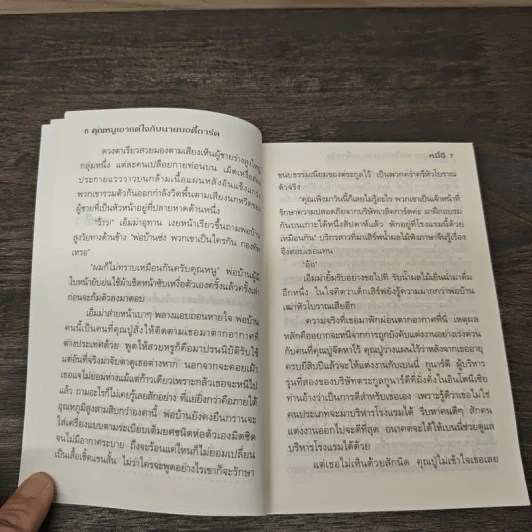 6 คุณหนูเอาแต่ใจกับนายบอดี้การ์ด
ดวงตาเรียวสวยมองตามเสียงเห็นผู้ชายร่างสูงใหญ่
กลุ่มหนึ่ง แต่ละคนเปลือยกายท่อนบน เม็ดเหงื่อส่อง
ประกายแวววาวบนกล้ามเนื้อแผ่นหลังอันแข็งแกร่ง
พวกเขารวมตัวกันออกกำลังวิดพื้นตามเสียงนกหวีดของ
ผู้ชายที่เป็นหัวหน้าอยู่ที่ปลายหาดด้านหนึ่ง
"ว้าว!" เอ็มม่าอุทาน เงยหน้าเรียวขึ้นถามพ่อบ้าน
สูงวัยทางด้านข้าง "พ่อบ้านซ่ง พวกเขาเป็นใครกัน กองทัพ
เหรอ"
"ผมก็ไม่ทราบเหมือนกันครับคุณหนู" พ่อบ้านผู้มี
ใบหน้ายับย่นใช้ผ้าเช็ดหน้าซับเหงื่อตัวเองครั้งแล้วครั้งเล่า
ก่อนจะก้มตัวลงมาตอบ
เอ็มม่าส่ายหน้าเบาๆ พลางแอบถอนหายใจ พ่อบ้าน
คนนี้เป็นคนที่คุณปู่สั่งให้ติดตามเธอมาตากอากาศที่
ต่างประเทศด้วย พูดให้สวยหรูก็คือมาปรนนิบัติรับใช้
แต่อันที่จริงมาจับตาดูเธอต่างหาก นอกจากจะคอยเฝ้า
เธอแจไม่ยอมห่างแม้แต่ก้าวเดียวเพราะกลัวเธอจะหนีไป
แล้ว ถามอะไรก็ไม่เคยรู้เลยสักอย่าง ที่แย่ยิ่งกว่าคือภายใต้
อุณหภูมิสูงสามสิบกว่าองศานี้ พ่อบ้านยังคงยืนกรานจะ
ใส่เครื่องแบบตามระเบียบเต็มยศชนิดห่อตัวเองมิดชิด
จนไม่มีอากาศระบาย ถึงจะร้อนแค่ไหนก็ไม่ยอมเปลี่ยน
เป็นเสื้อเชิ้ตแขนสั้น ไม่ว่าใครจะพูดอย่างไรเขาก็จะรักษา
7
ขนบธรรมเนียมของตระกูลไว้ เป็นพวกคร่ำครึหัวโบราณ
ตัวจริง
"คุณเพิ่งมาวันนี้ก็เลยไม่รู้อะไร พวกเขาเป็นเจ้าหน้าที่
รักษาความปลอดภัยจากบริษัทเวลิดการ์ดค่ะ มาฝึกอบรม
กันบนเกาะได้หนึ่งสัปดาห์แล้ว พักอยู่ที่โรงแรมนี้ด้วย
เหมือนกัน" บริกรสาวที่มาเสิร์ฟน้ำผลไม้ฟังภาษาจีนรู้เรื่อง
จึงตอบเธอแทน
"อ้อ"
เอ็มม่ายิ้มรับอย่างขอไปที รับน้ำผลไม้เย็นฉ่ำมาดื่ม
อีกหนึ่ง ในใจคิดว่าเด็กเสิร์ฟยังรู้ความมากกว่าพ่อบ้าน
เฒ่าหัวโบราณเสียอีก
ความจริงที่เธอมาพักผ่อนตากอากาศที่นี่ เหตุผล
หลักคืออยากจะหนีจากการถูกบังคับแต่งงานอย่างเร่งด่วน
กับคนที่คุณปู่จัดหาไว้ คุณปู่วางแผนไว้ว่าหลังจากเธออายุ
ครบยี่สิบปีแล้วจะให้แต่งงานกับเบนนี่ กูนาร์ดี ผู้บริหาร
รุ่นที่สองของบริษัทตระกูลกูนาร์ดีที่มั่งคั่งในอินโดนีเซีย
ท่านอ้างว่าเป็นการดีสำหรับเธอเอง เพราะรู้ดีว่าเธอไม่ใช่
คนประเภทจะมาบริหารโรงแรมได้ รีบหาคนดีๆ สักคน
แต่งงานออกไปจะดีที่สุด อนาคตจะได้ให้เบนนี่ช่วยดูแล
บริหารโรงแรมได้ด้วย
แต่เธอไม่เห็นด้วยสักนิด คุณปู่ไม่เข้าใจเธอเลย